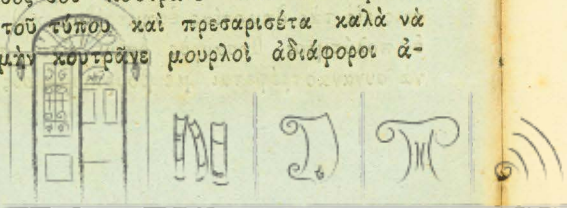 τοῦ τύπου καὶ πρεσαρισέτα καλὰ νὰ
μὴν κουτρᾶνε μουρλοὶ ἀδιάφοροι ἀ-